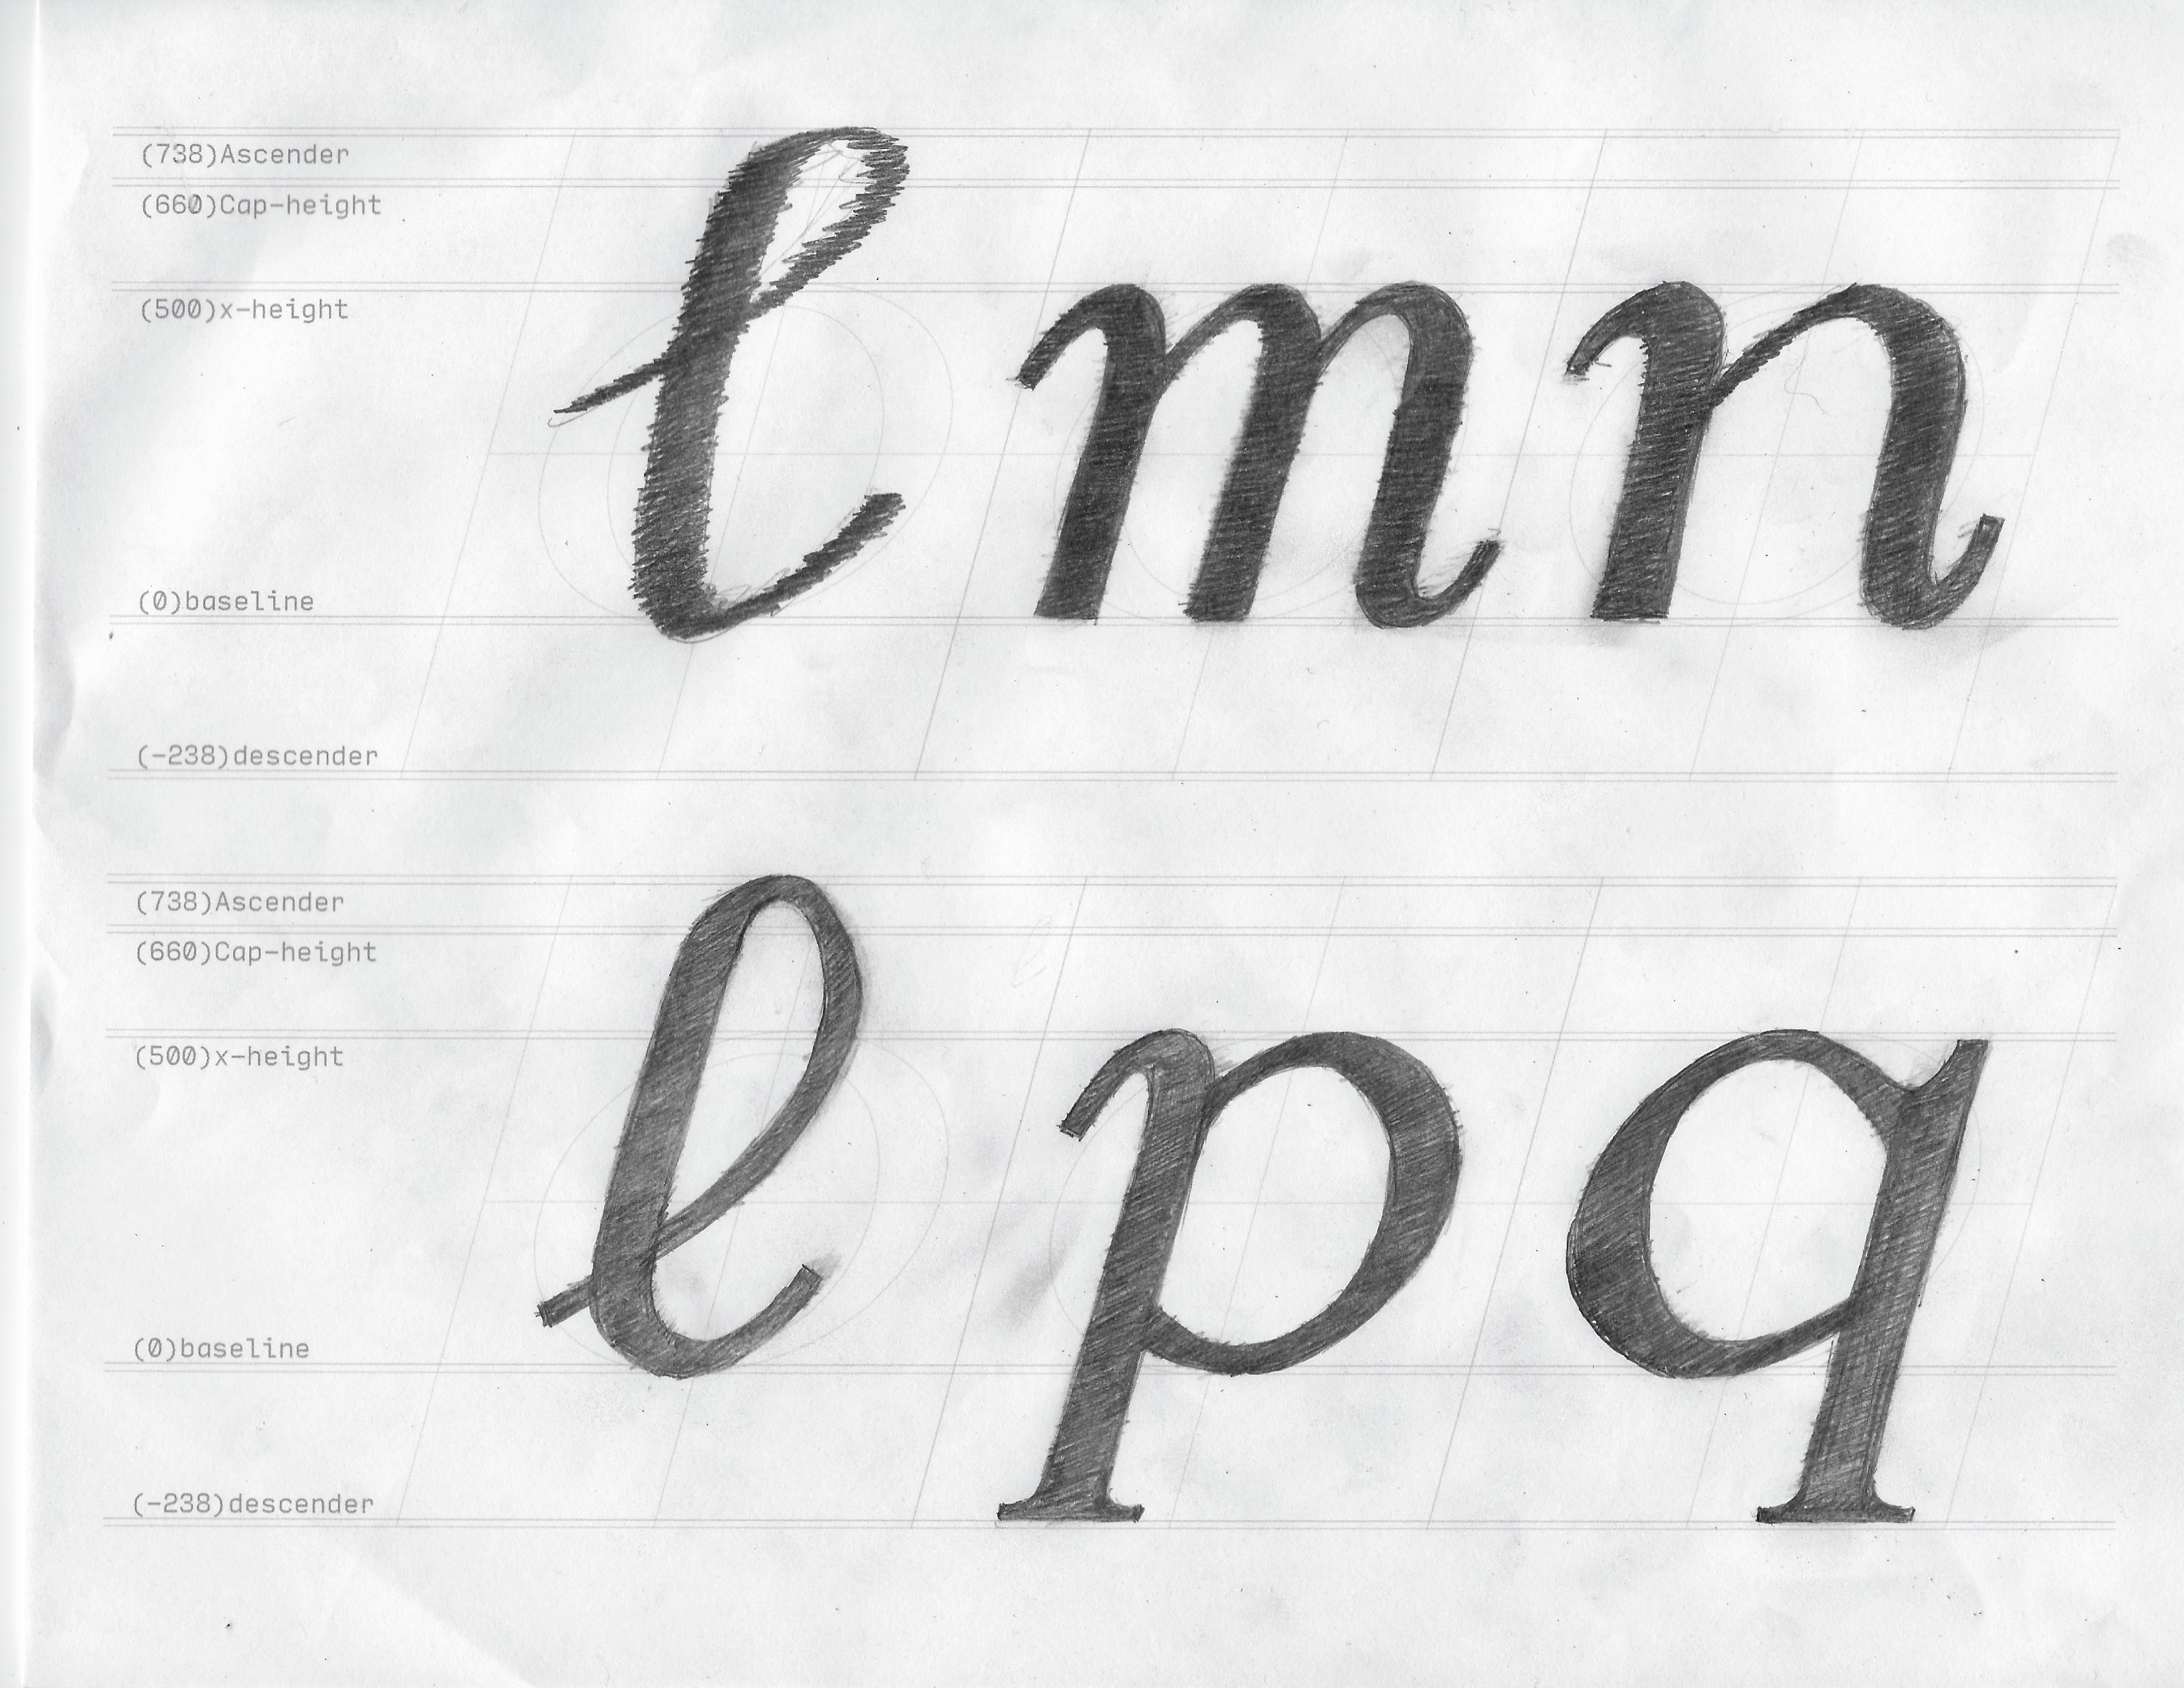 (738)Ascender
(660)Cap-height
(500)x-height
l m n
(0)baseline
(-238)descender
(738)Ascender
(660)Cap-height
(500)x-height
l p q
(0)baseline
(-238)descender